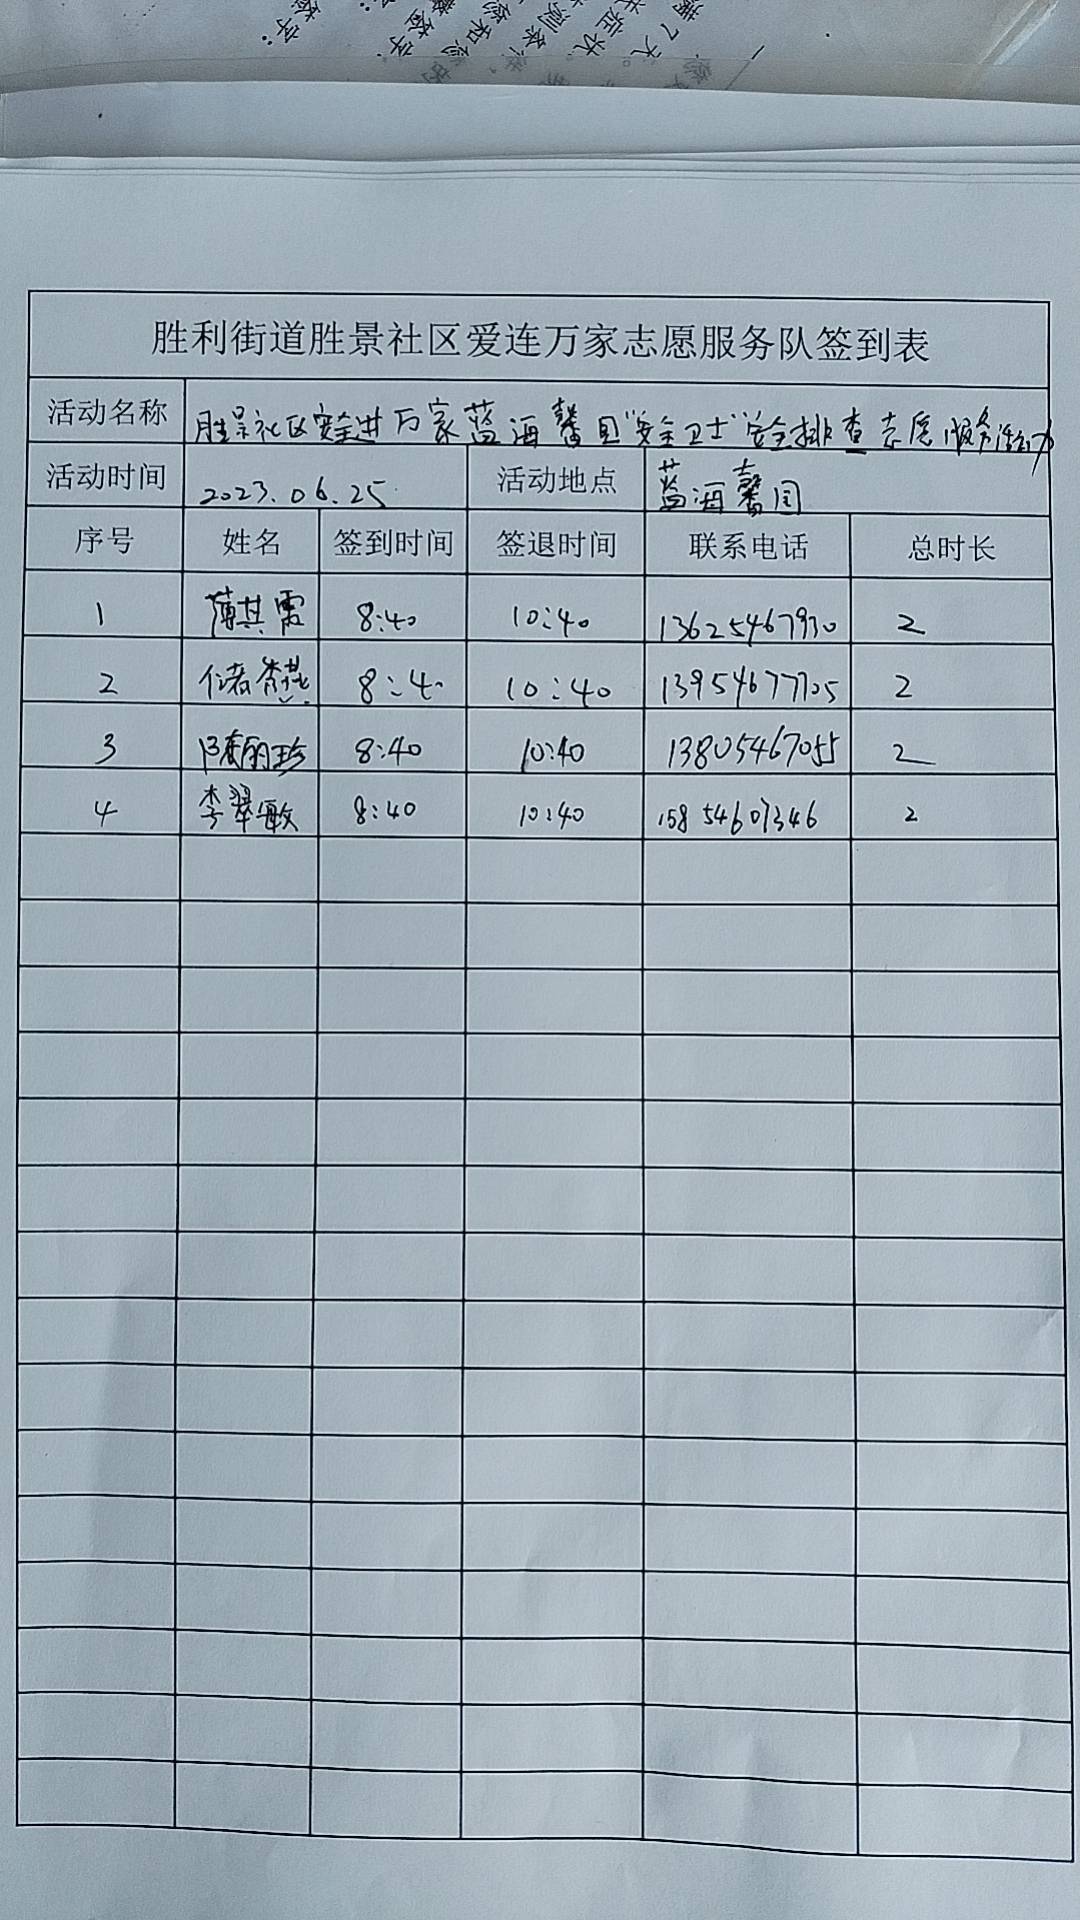 胜利街道胜景社区爱连万家志愿服务队签到表
活动名称 胜景社区安全进万家蓝海馨园"安全卫士"安全排查志愿服务活动
活动时间 2023.06.25. 活动地点 蓝海馨园
序号 姓名 签到时间 签退时间 联系电话 总时长
1 薄其霞 8:40 10:40 13625467930 2
2 8:4 10:40 13954677705 2
3 陈丽珍 8:40 10:40 13805467055 2
4 李翠敏 8:40 10:40 15854607346 2